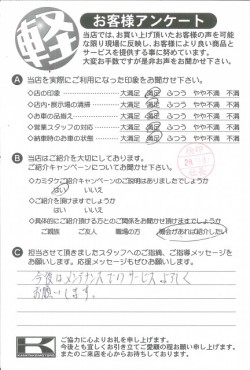 軽
お客様アンケート
当店では、お買い上げ頂いたお客様の声を可能
な限り現場に反映し、お客様により良い商品と
サービスを提供する事に努めています。
大変お手数ですが是非お声をお聞かせ下さい。
A 当店を実際にご利用になった印象をお聞かせ下さい。
◇店の印象 大満足 満足 ふつう やや不満 不満
◇店内・展示場の清掃 大満足 満足 ふつう やや不満 不満
◇お車の品揃え 大満足 満足 ふつう やや不満 不満
◇営業スタッフの対応 大満足 満足 ふつう やや不満 不満
◇納車時のお車の状態 大満足 満足 ふつう やや不満 不満
B 当店はご紹介を大切にしております。
ご紹介キャンペーンについてお聞かせ下さい。
◇カミタケご紹介キャンペーンのご説明はありましたでしょうか
はい いいえ
◇ご紹介を頂けますでしょうか
はい いいえ
◇具体的にご紹介頂ける方とのご関係をお聞かせ頂けますでしょうか
ご親族 ご友人 職場の方 機会があれば紹介したい
C 担当させて頂きましたスタッフへのご指摘、ご指導メッセージを
お願いします。応援メッセージもぜひお願いします。
今後はメンテナンスでのサービスよろしく
お願いします。
K
ご協力に心よりお礼を申し上げます。
今後とも宜しくお引き立てご愛顧の程お願い申し上げます。
またのご来店を心からお待ちしております。